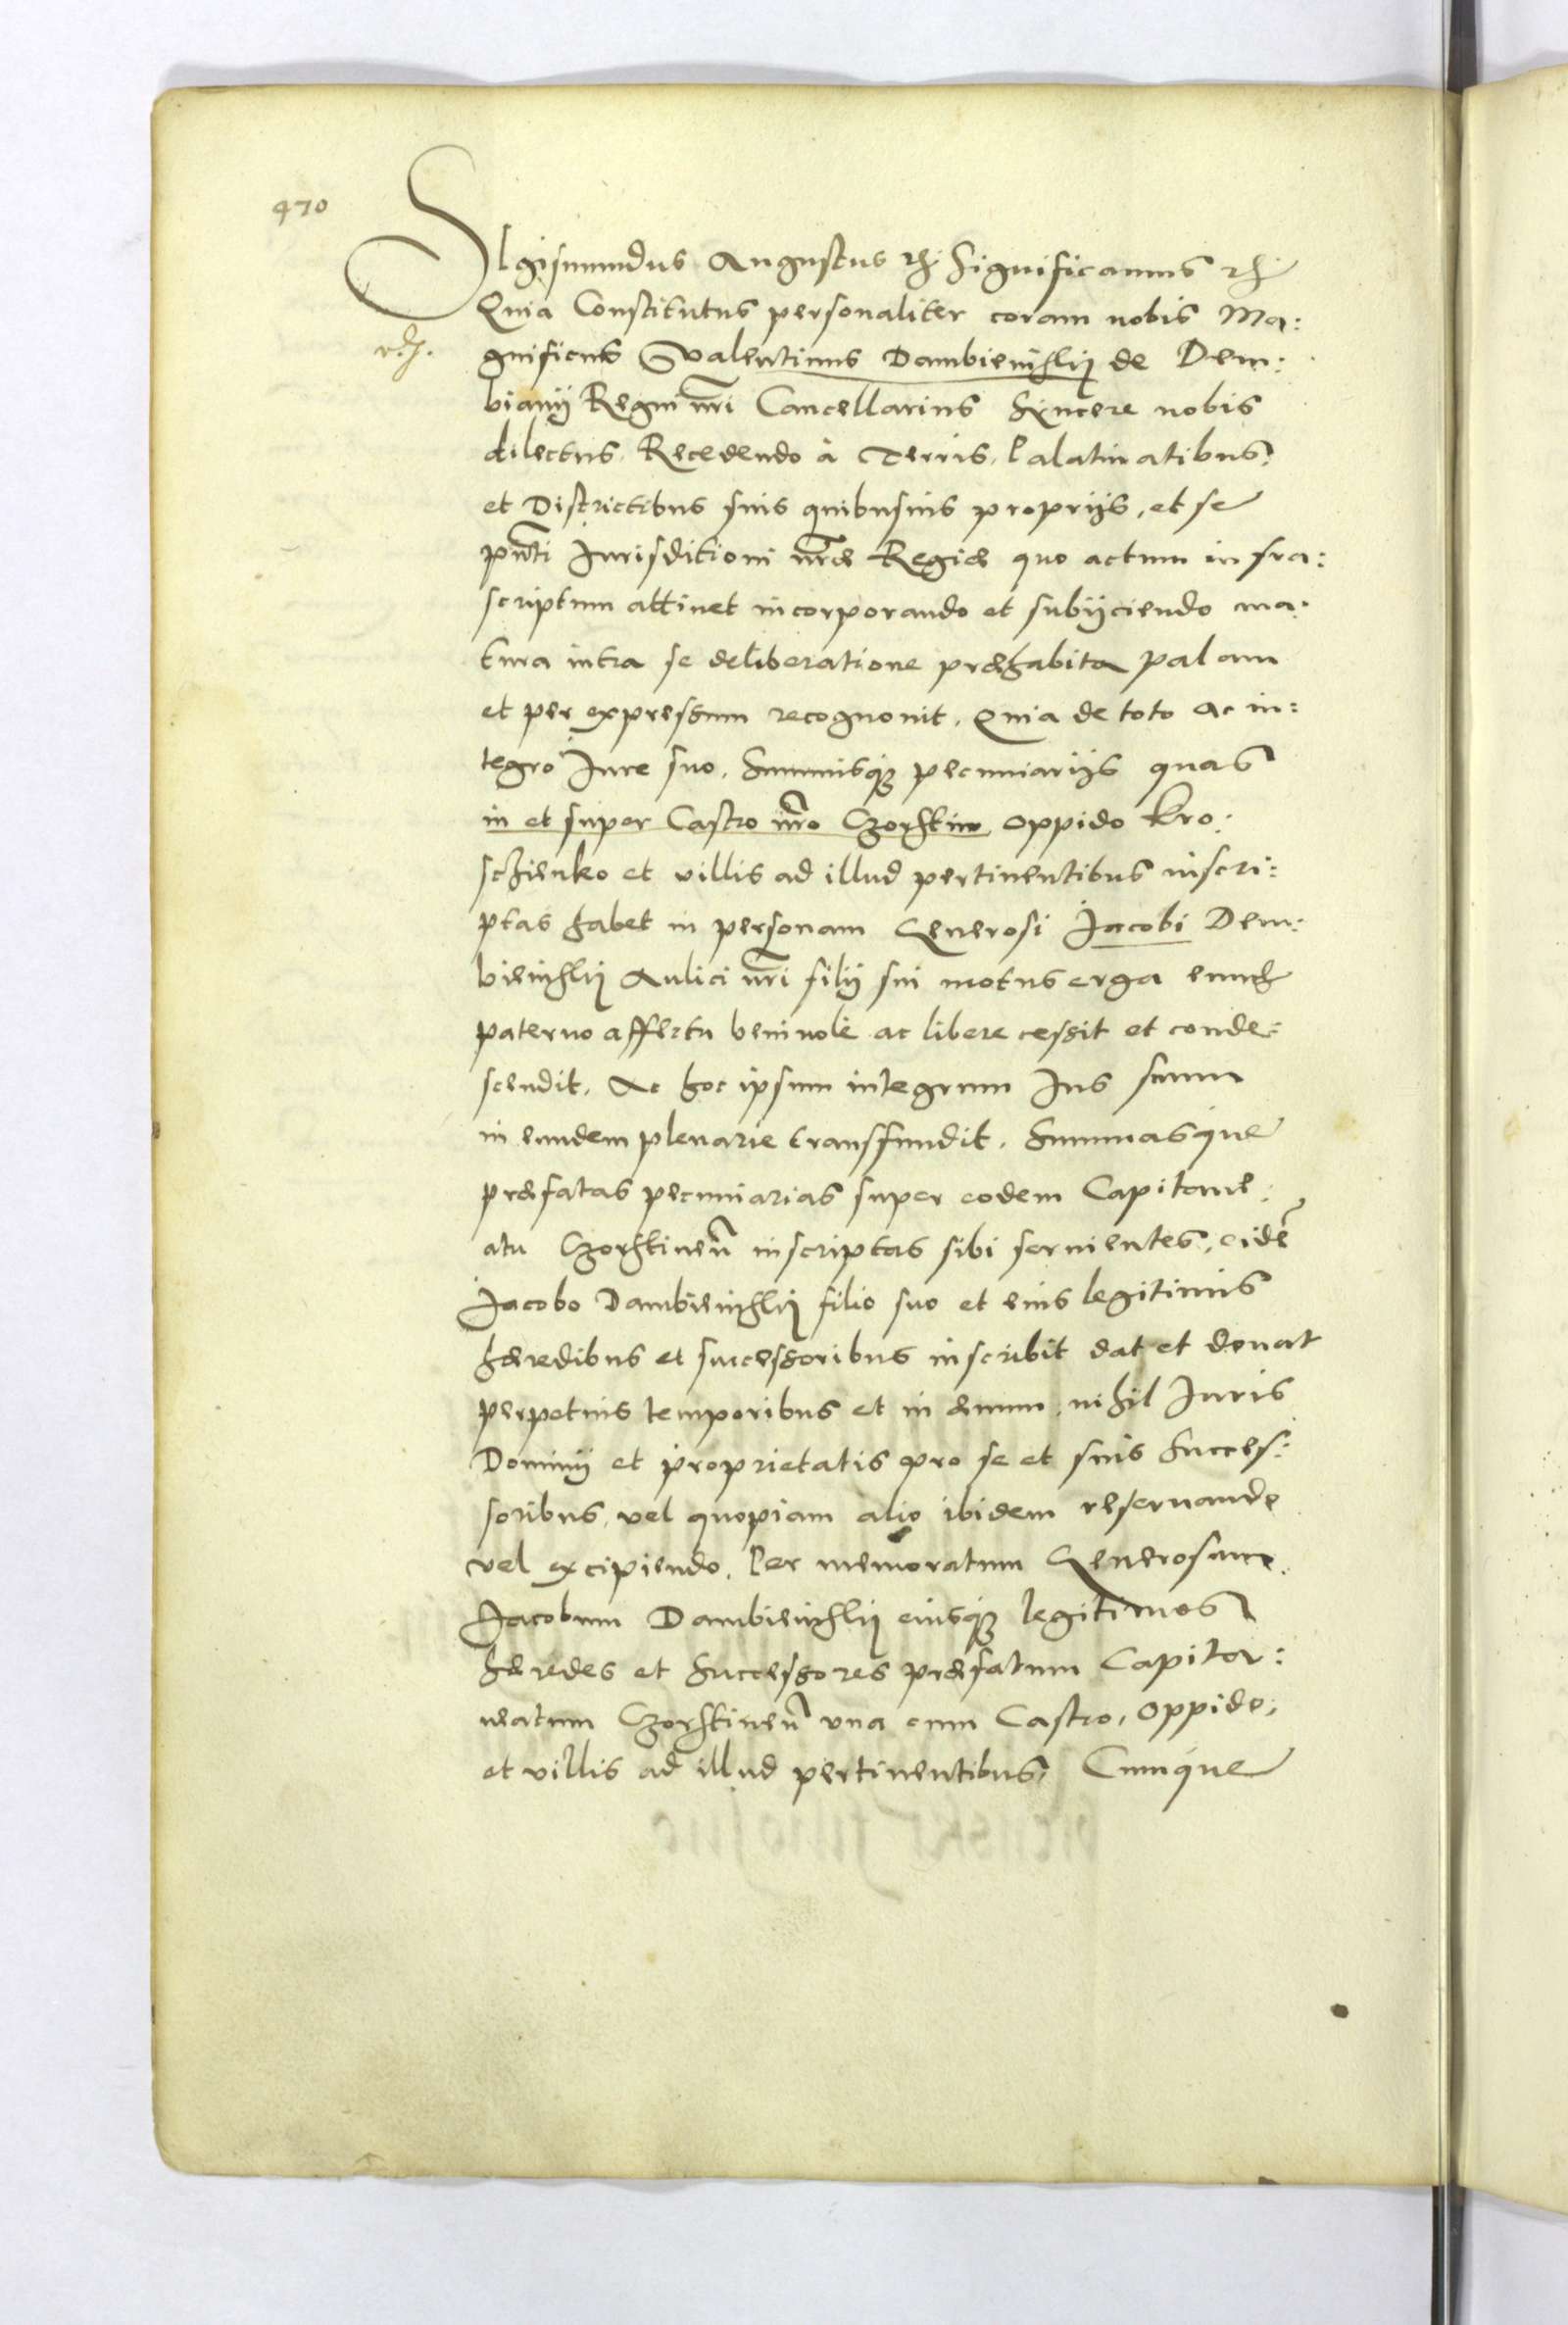 470
SIgismundus Augustus etc. Significamus etc.
Quia Constitutus personaliter coram nobis Ma:
gnificus Valentinus Dambienski de Dem:
biany Regni nri Cancellarius Syncere nobis
dilectus. Recedendo à Terris, Palatinatibus,
et Districtibus suis quibusuis proprijs, et se
pnti Jurisditioni nræ Regiæ quo actum infra:
scriptum attinet incorporando et subijciendo ma:
tura intra se deliberatione præhabita palam
et per expressum recognouit. Quia de toto ac in:
tegro Jure suo. Summisq3 pecuniarijs quas
in et super Castro nro Czorstin, oppido Kro:
schienko et villis ad illud pertinentibus inscri:
ptas habet in personam Generosi Jacobi Dem:
bienski Aulici nri filij sui motus erga eund
paterno affectu beniuole ac libere cessit et conde:
scendit. Ac hoc ipsum integrum Jus suum
in eundem plenarie transfundit. Summasque
præfatas pecuniarias super eodem Capitane:
atu Czorstinen inscriptas sibi seruientes, eidē
Jacobo Dambienski filio suo et eius legitimis
hæredibus et successoribus inscribit dat et donat
perpetuis temporibus et in æuum, nihil Juris
Dominij et proprietatis pro se et suis Succes:
soribus, vel quopiam alio ibidem reseruando
vel excipiendo. Per memoratum Generosum
Jacobum Dambienski eiusq3 legitimos
hæredes et Successores præfatum Capita:
neatum Czorstinen vna cum Castro, oppido,
et villis ad illud pertinentibus, Cumque